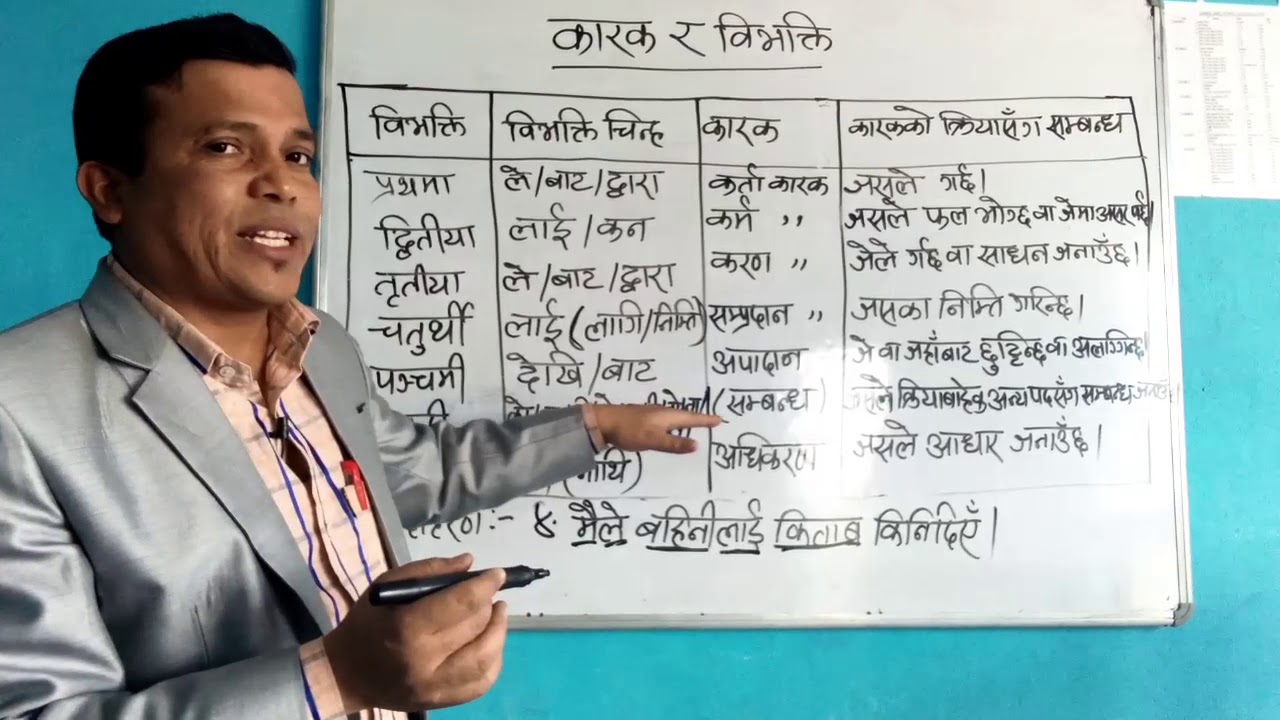 कारक र विभक्ति
विभक्ति विभक्ति चिन्ह कारक कारकको क्रियासँग सम्बन्ध
प्रथमा ले/बाट/द्वारा कर्ता कारक जसले गर्छ।
द्वितीया लाई/कन कर्म ,, जसले फल भोग्छ वा जेमा असर पर्छ।
तृतीया ले/बाट/द्वारा करण ,, जेले गर्छ वा साधन जनाउँछ।
चतुर्थी लाई(लागि/निम्ति) सम्प्रदान ,, जसका निम्ति गरिन्छ।
पञ्चमी देखि/बाट अपादान जे वा जहाँबाट छुट्टिन्छ वा अलग्गिन्छ।
(सम्बन्ध) जसले क्रियाबाहेक अन्य पदसँग सम्बन्ध जनाउँछ।
अधिकरण जसले आधार जनाउँछ।
४. मैले बहिनीलाई किताब किनिदिएँ।